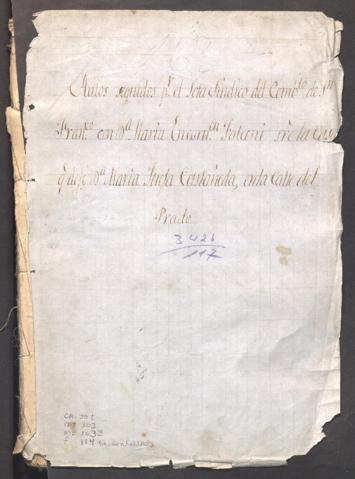 Autos seguidos pr. el Sota Sindico del Combto. de Sn.
Franco. con Da. Maria Encarnn. Falconi sre. la Casa
q. dejó Da. Maria Josefa Castañeda, en la Calle del
Prado
3426
117
CA. 301
303
1033
f. 114